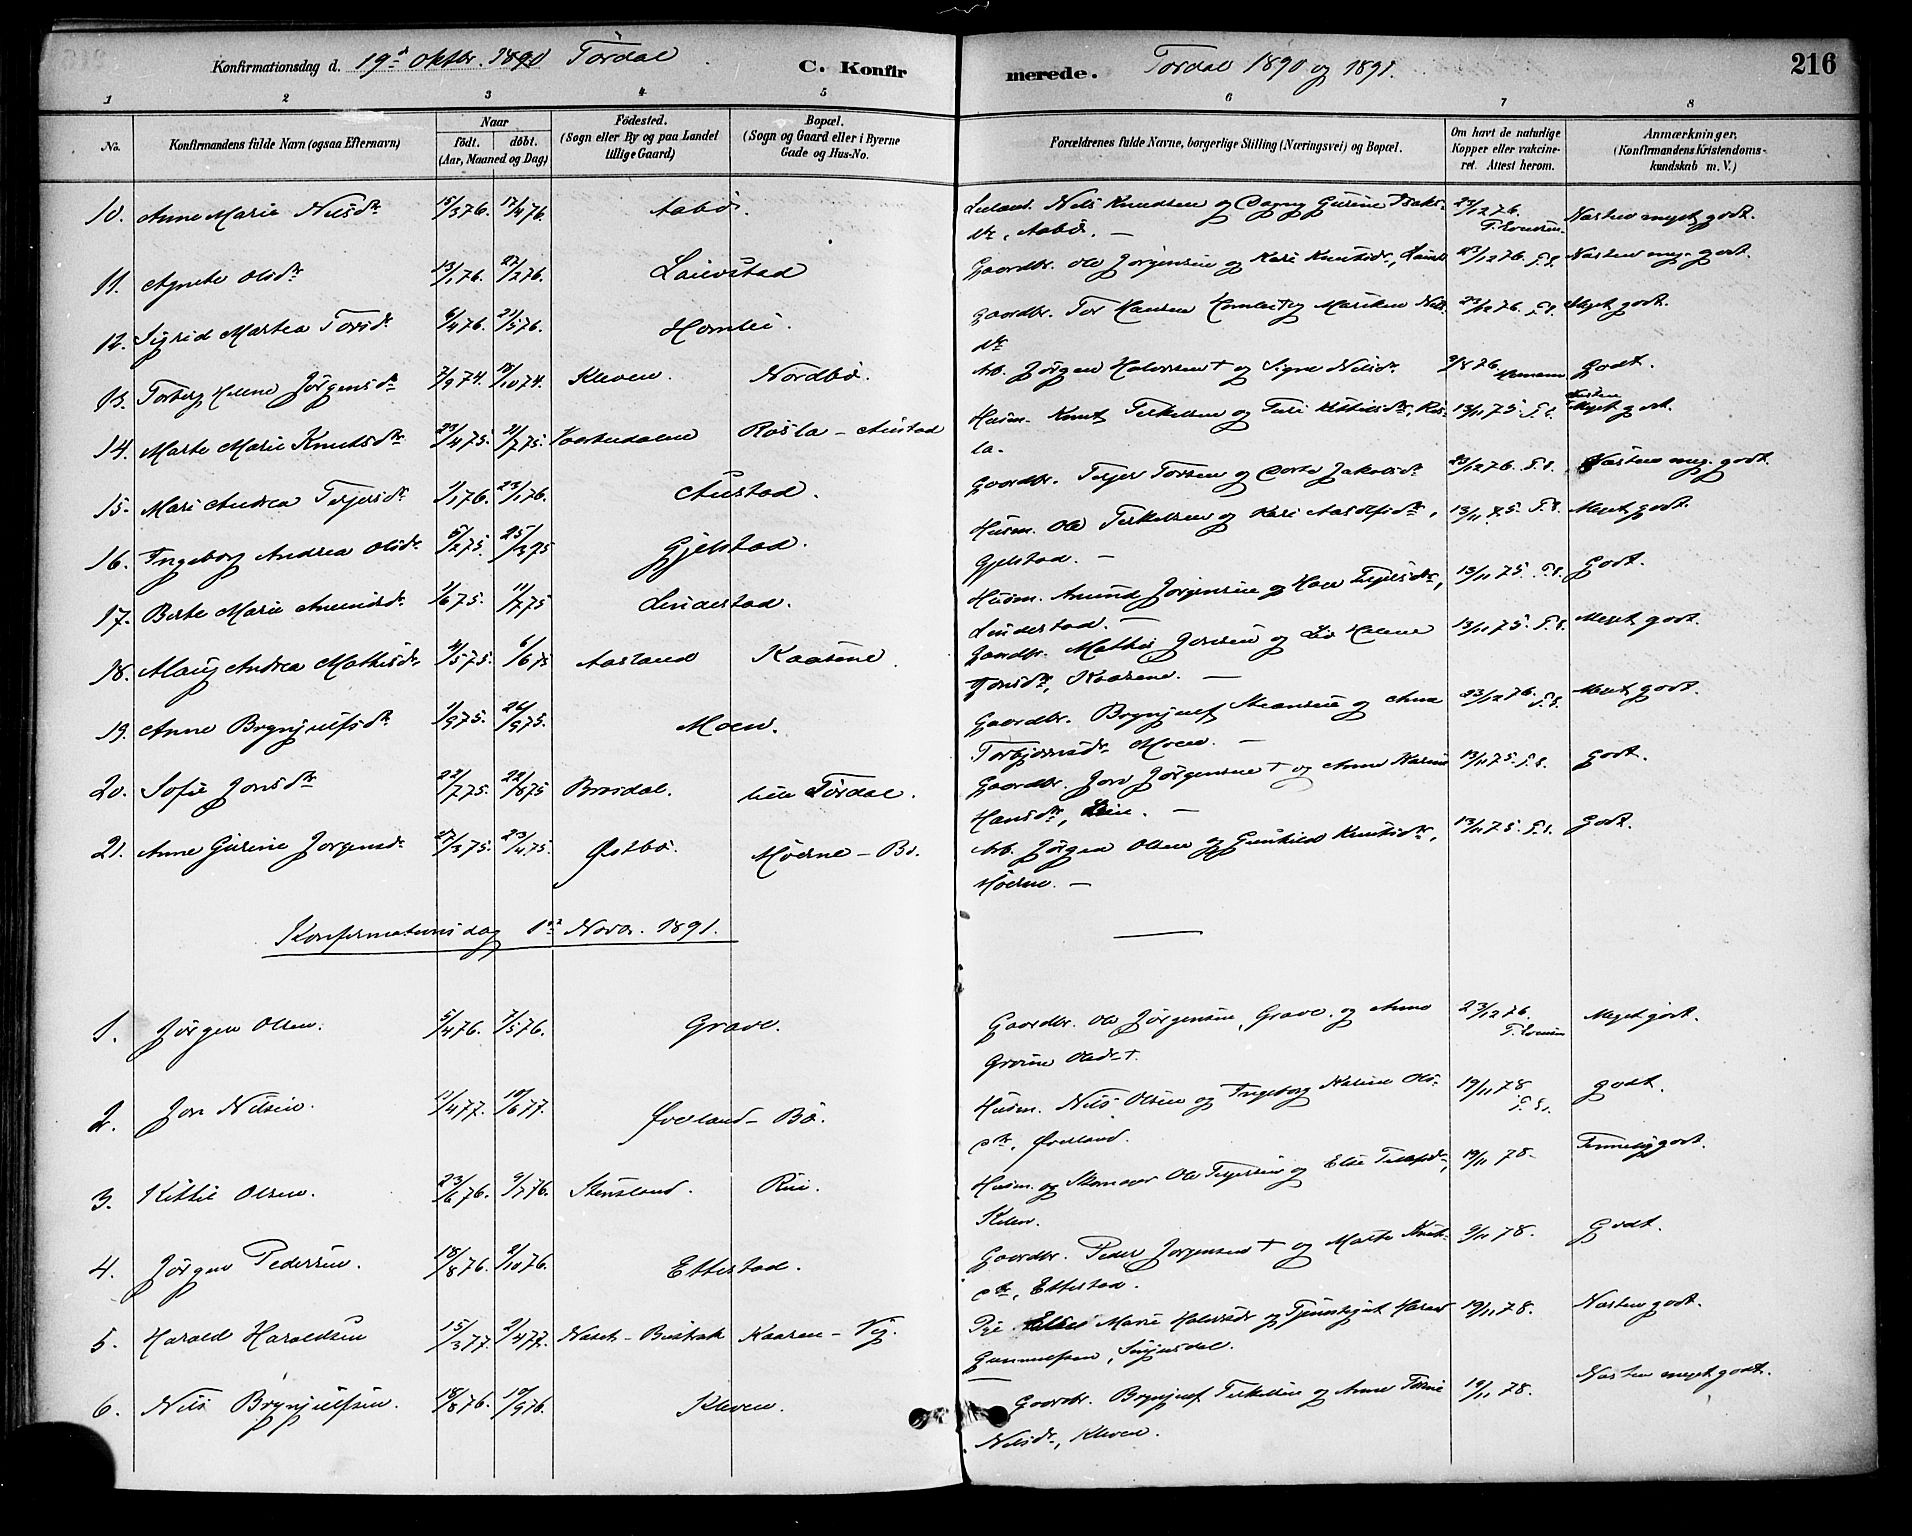 Konfirmationsdag d. 19de Oktbr. 1890 Tördal. C. Konfir merede. Tordal 1890 og 1891. 216
1 2 3 4 5 6 7 8
No. Konfirmandens fulde Navn (ogsaa Efternavn) Naar født. døbt. (Aar, Maaned og Dag) Fødested. (Sogn eller By og paa Landet tillige Gaard) Bopæl. (Sogn og Gaard eller i Byerne Gade og Hus-No. Forældrenes fulde Navne, borgerlige Stilling (Næringsvei) og Bopæl. Om havt de naturlige Kopper eller vakcineret. Attest herom. Anmærkninger. (Konfirmandens Kristendomskundskab m. V.)
10. Anne Marie Nilsdr 15/3 76. 17/4 76. Aabö. Nils Knudsen og Dagny Gurine Isaks-
dr, Aabö. — 23/12 76. Næsten meget godt.
11. Agnete Olsdr 13/1 76. 27/2 76. Gaardbr. Ole Jörgensen og Kari Knutsdr, 23/12 76. Næsten meg. godt.
12. Sigrid Martea Torsdr 6/4 76. 21/5 76. Homlei. Gaardbr. Tor Hansen Homlei og Mariken Nils-
dr 23/12 76. Meget godt.
13. Torberg Helene Jörgensdr 7/9 74. 18/10 74. Kleven. Nordbö. Arb. Jörgen Halvorsen + og Signe Nilsdr. Godt.
14. Marte Marie Knutsdr 23/4 75. 11/7 75. Rosla - Austad Husm. Knut Terkelsen og Turi Kittilsdr, Ros-
la. 13/11 75. Næsten Meget godt.
15. Mari Andrea Terjersdr 1/1 76. 23/1 76. Austad. Gaardbr. Terjer Torsen og Dorte Jakobsdr 23/12 76. Næsten meg. godt.
16. Ingeborg Andrea Olsdr 5/2 75. 25/3 75 Gjelstad. Husm. Ole Terkelsen og Kari
Gjelstad. — 13/11 75. Meget godt.
17. Berte Marie Amundsdr 1/6 75. 11/7 75 Lindestad. Husm. Amund Jörgensen og
Lindestad. — 13/11 75. Godt.
18. Andrea Mathisdr 4/5 75. 6/6 75 Aasland Kaasene. Gaardbr. Mathis Jonsen og Liv Helene
Jonsdr, Kaasene. — 13/11 75. Meget godt.
19. Anne Brynjulfsdr 1/9 75. 26/9 75. Moen. Gaardbr. Brynjulf og Anne
Torbjörnsdr Moen. — 23/12 76. Meget godt.
20. Sofie Jonsdr 22/7 75. 22/8 75 Brosdal. Lien Tördal. Gaardbr. Jon Jörgensen + og Anne Karine
Hansdr, Lien. — 13/11 75. Godt.
21. Anne Gurine Jorgensdr 27/3 75. 23/4 75. Østbö. Moerne - Bö. Arb. Jörgen Olsen og Gunhild Knutsdr,
Moerne. — 13/11 75. Godt.
Konfirmationsdag 1ste Novbr. 1891.
1. Jörgen Olsen. 5/4 76. 7/5 76. Grave. Gaardbr. Ole Jörgensen, Grave. og Anne
Olsdr +. 23/12 76. Meget godt.
2. Jon Nilsen. 11/4 77. 10/6 77. Øverland - Bö. Husm. Nils Olsen og Ingeborg Karine Ols-
dr, Øverland. 19/11 78. Godt.
3. Kittil Olsen. 23/6 76. 9/7 76. Stensland. Rui. Husm. og Skomager Ole Terjersen og Else
19/11 78. Temmelig godt.
4. Jörgen Pedersen. 18/8 76. 2/10 76. Ettestad. Gaardbr. Peder Jorgensen + og Marte Knuts-
dr, Ettestad. 9/11 78. Godt.
5. Harald Haraldsen 15/3 77. 2/4 77. Kaasen - Vig. Pige Marie Halvorsdr og Harald
Gunnulfsen, 19/11 78. Næsten godt.
6. Nils Brynjulfsen. 18/8 76. 10/9 76. Kleven. Gaardbr. Brynjulf Terkelsen og Anne Torine
Nilsdr, Kleven. 19/11 78. Næsten meget godt.